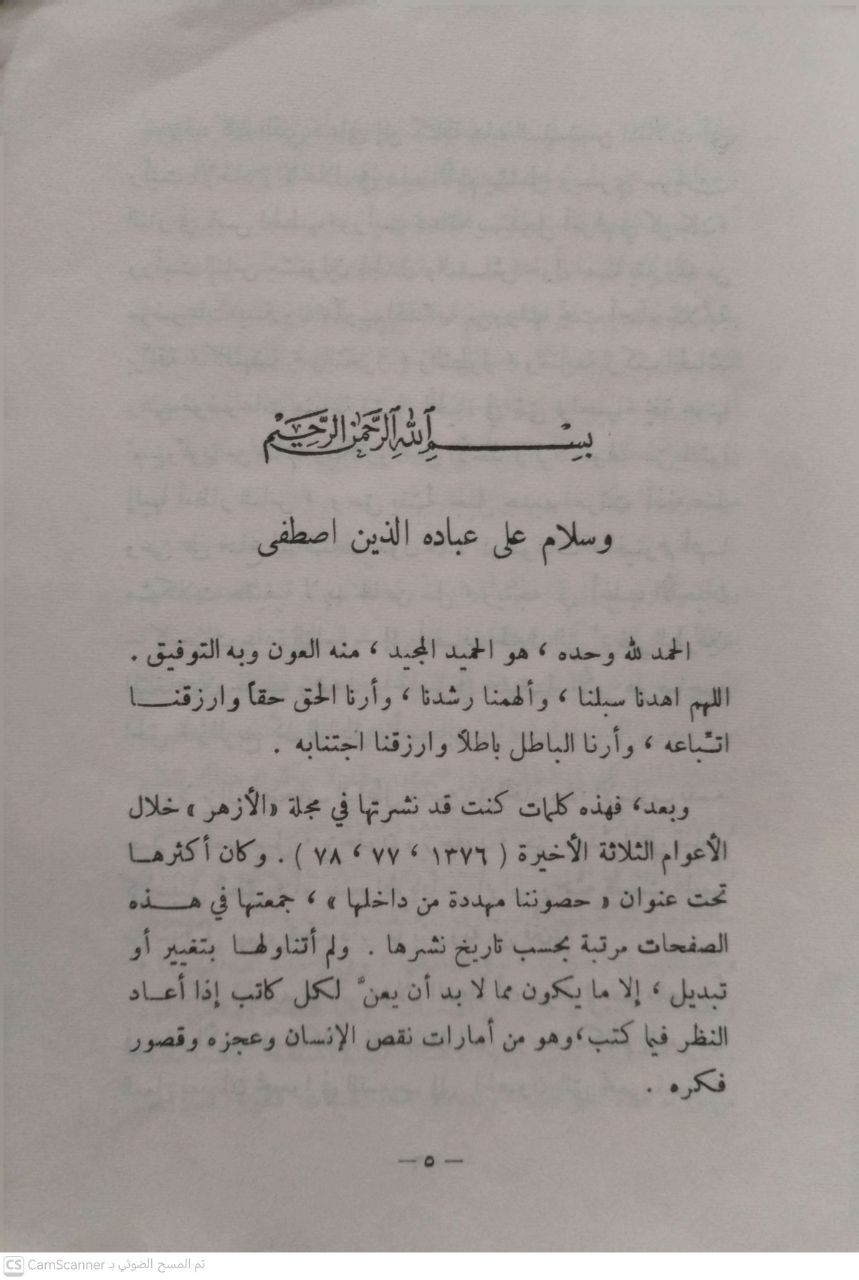 بسم الله الرحمن الرحيم
وسلام على عباده الذين اصطفى
الحمد لله وحده ، هو الحميد المجيد ، منه العون وبه التوفيق .
اللهم اهدنا سبلنا ، وألهمنا رشدنا ، وأرنا الحق حقاً وارزقنـــا
اتـّباعه ، وأرنا الباطل باطلاً وارزقنا اجتنابه .
وبعد، فهذه كلمات كنت قد نشرتها في مجلة «الأزهر» خلال
الأعوام الثلاثة الأخيرة ( ١٣٧٦ ، ٧٧ ، ٧٨ ) . وكان أكثرهـا
تحت عنوان « حصوننا مهددة من داخلها » ، جمعتها في هـــذه
الصفحات مرتبة بحسب تاريخ نشرها . ولم أتناولهـا بتغيير أو
تبديل ، إلا ما يكون مما لا بد أن يعنَّ لكل كاتب إذا أعـاد
النظر فيما كتب،وهو من أمارات نقص الإنسان وعجزه وقصور
فكره .
— ٥ —
CS CamScanner تم المسح الضوئي بـ